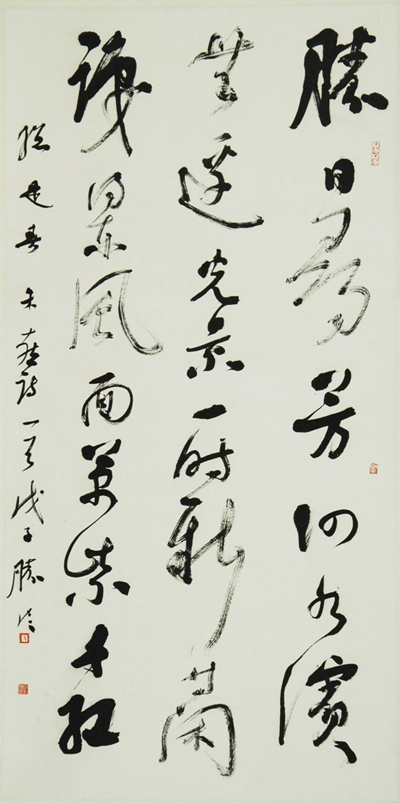 勝日尋芳泗水濱
無邊光景一時新等閑
識得東風面萬紫千紅
總是春 朱熹詩一首 戊子勝